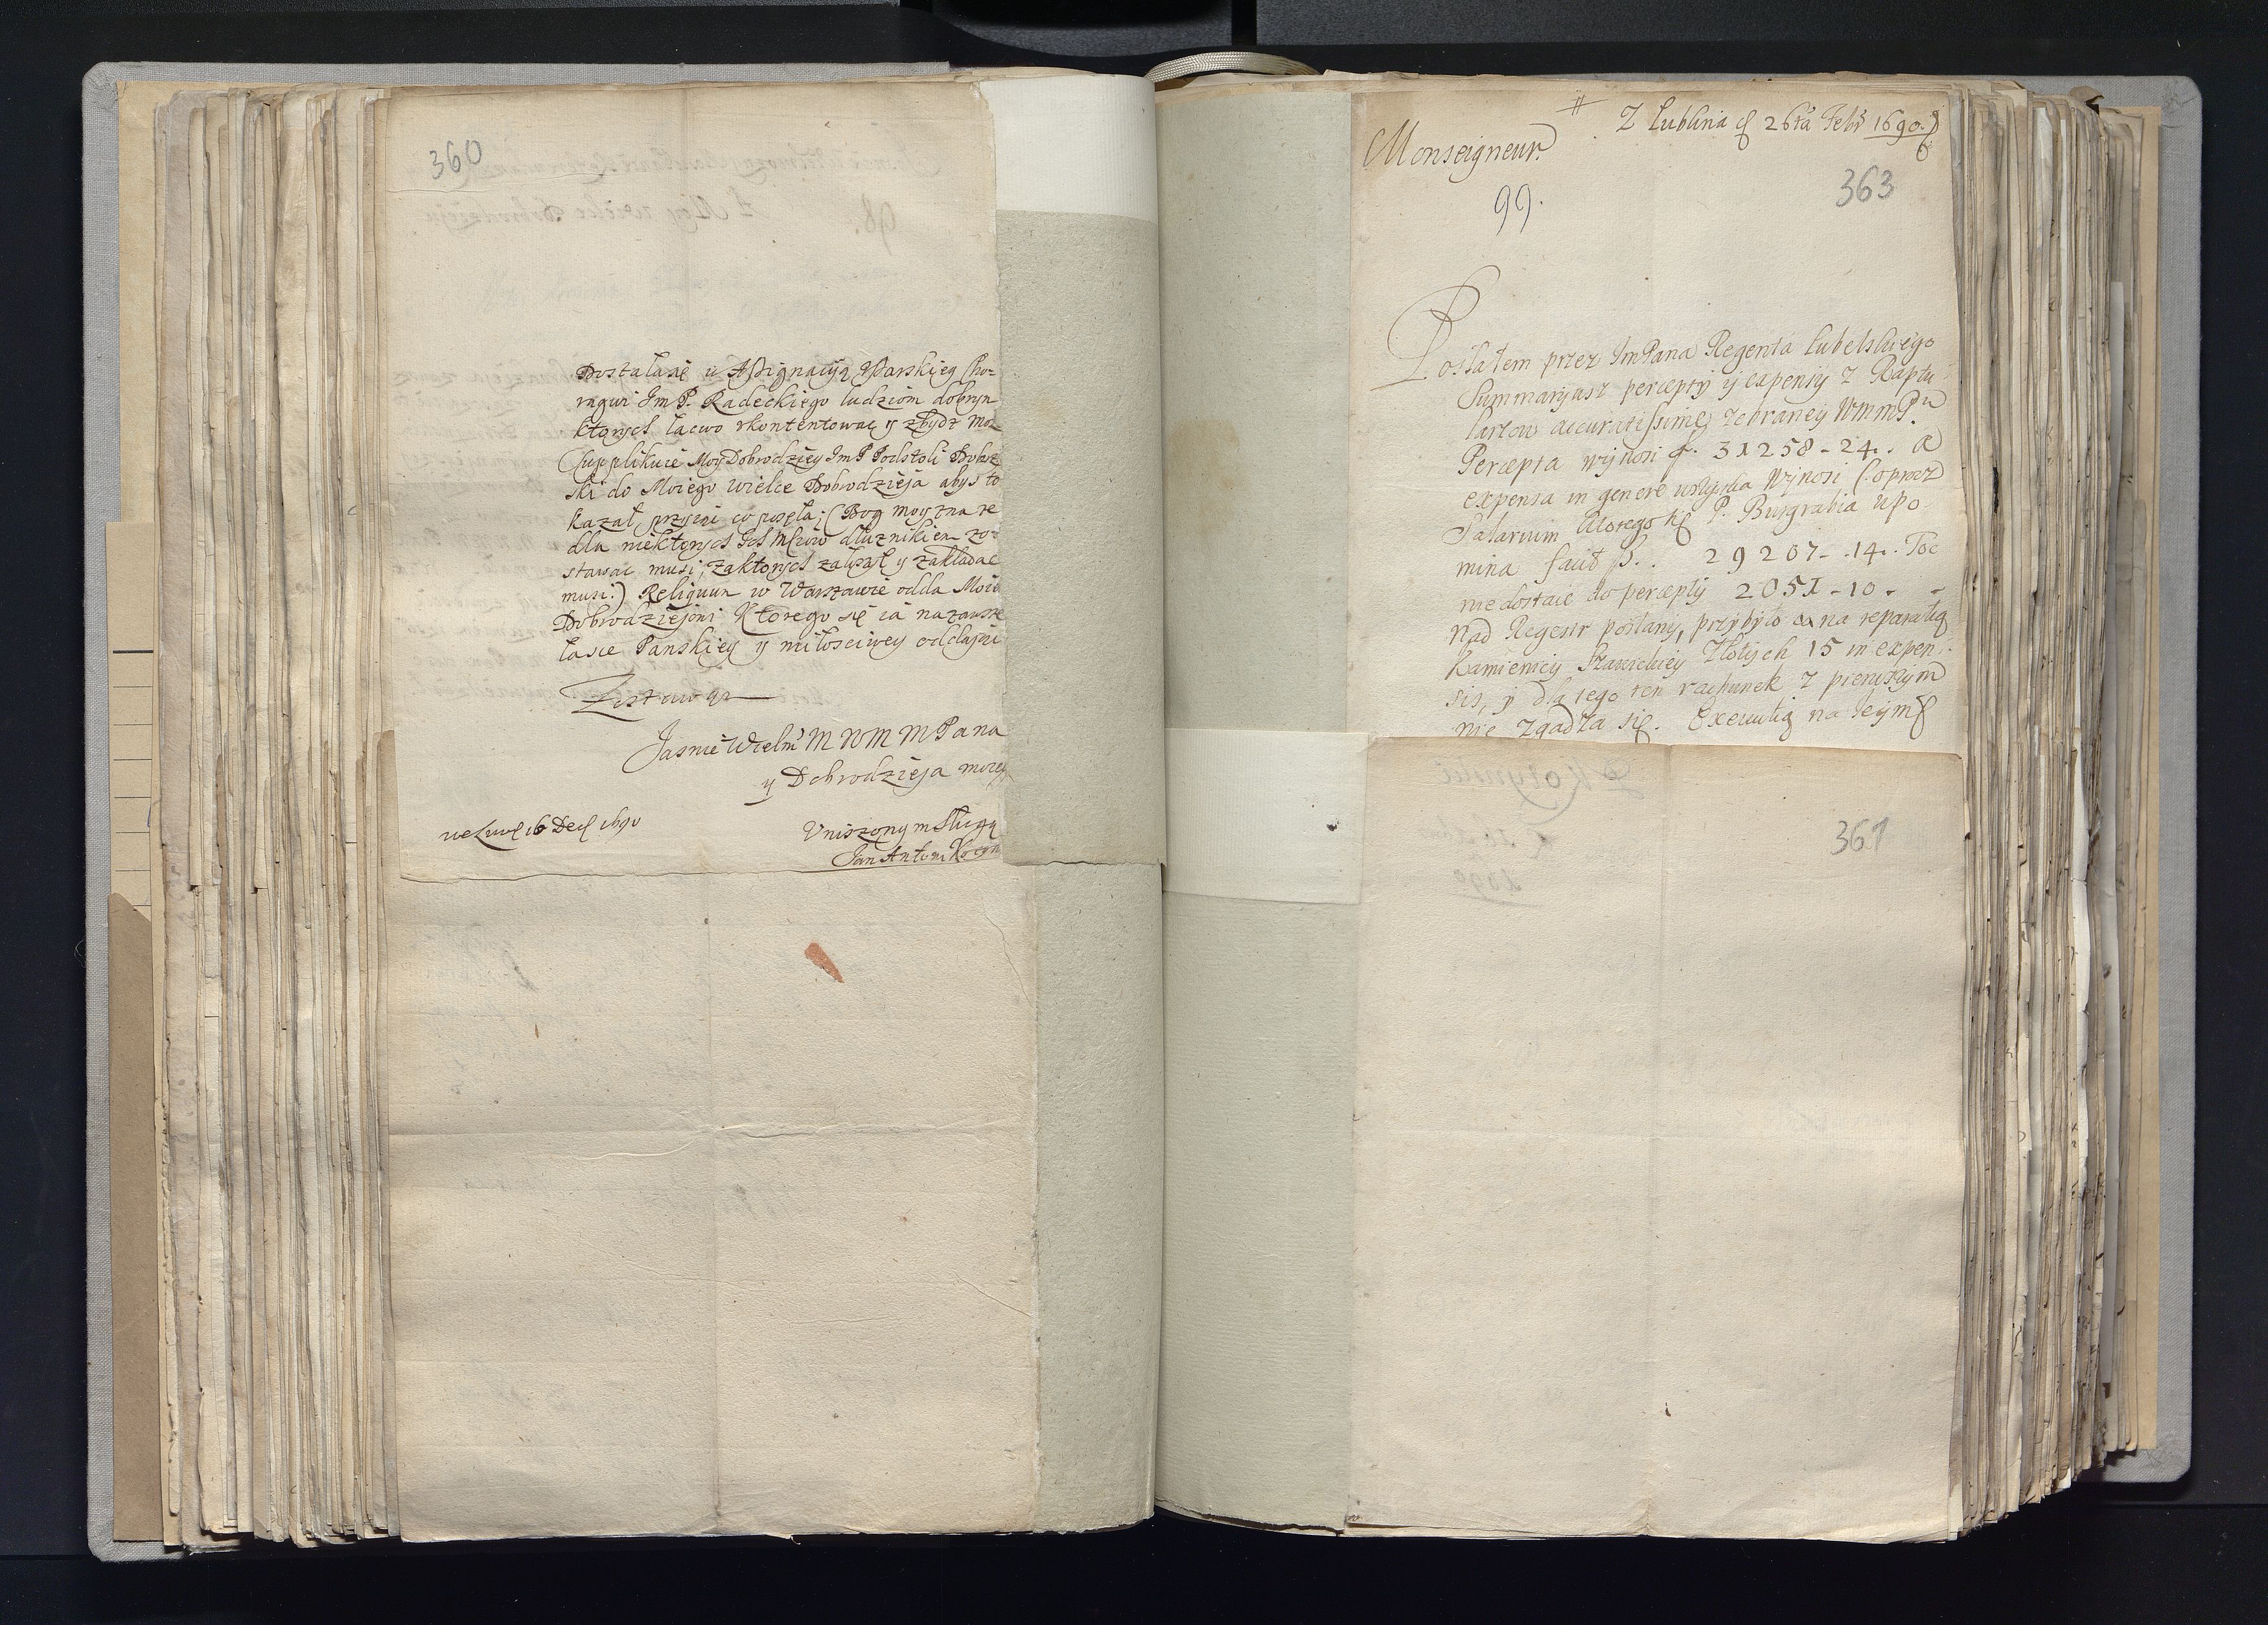 360
Dostala się u Assignacyą Usarskiey Cho-
rągwi Im P. Radeckiego ludziom dobrym
ktorych łacwo skontentować y zbydz moz
Supplikuie Moy Dobrodziey Im P Podstoli
ski do Moiego wielce Dobrodzieja abys to
kazał (Bog moy zna ze
dla niektorych Ich Mciow dłuznikiem zo-
stawać musi, za ktorych załozył y zakładać
musi.) Reliquum w Warszawie odda Moie
Dobrodziejowi Ktorego się ia na zawsze
łasce Panskiey y miłosciwey oddaiąc
Zostawam
Jasnie Wielm M W M M Pana
y Dobrodzieja moieg
we Lwo 16 Dec 1690
Unizonym Sługą
Jan Antoni
Z Lublina d 26ta Febr 1690.
Monseigneur.
363
99.
Posłałem przez ImPana Regenta Lubelskiego
Summaryusz percepty y expensy z Raptu
larzow accuratissime zebraney WMMPu
Percepta wynosi f. 31258-24. a
expensa in genere wszystka wynosi (oprocz
Salarium ktorego P. Burgrabia upo
mina facit f. 29207-14. Toć
niedostaie do percepty 2051-10-
Nad Regestr posłany, przybyło na reparatią
Kamienicy Złotych 15 in expen
sis, y dla tego ten rachunek z pierwszym
nie zgadza się. Executią na Ieym
361